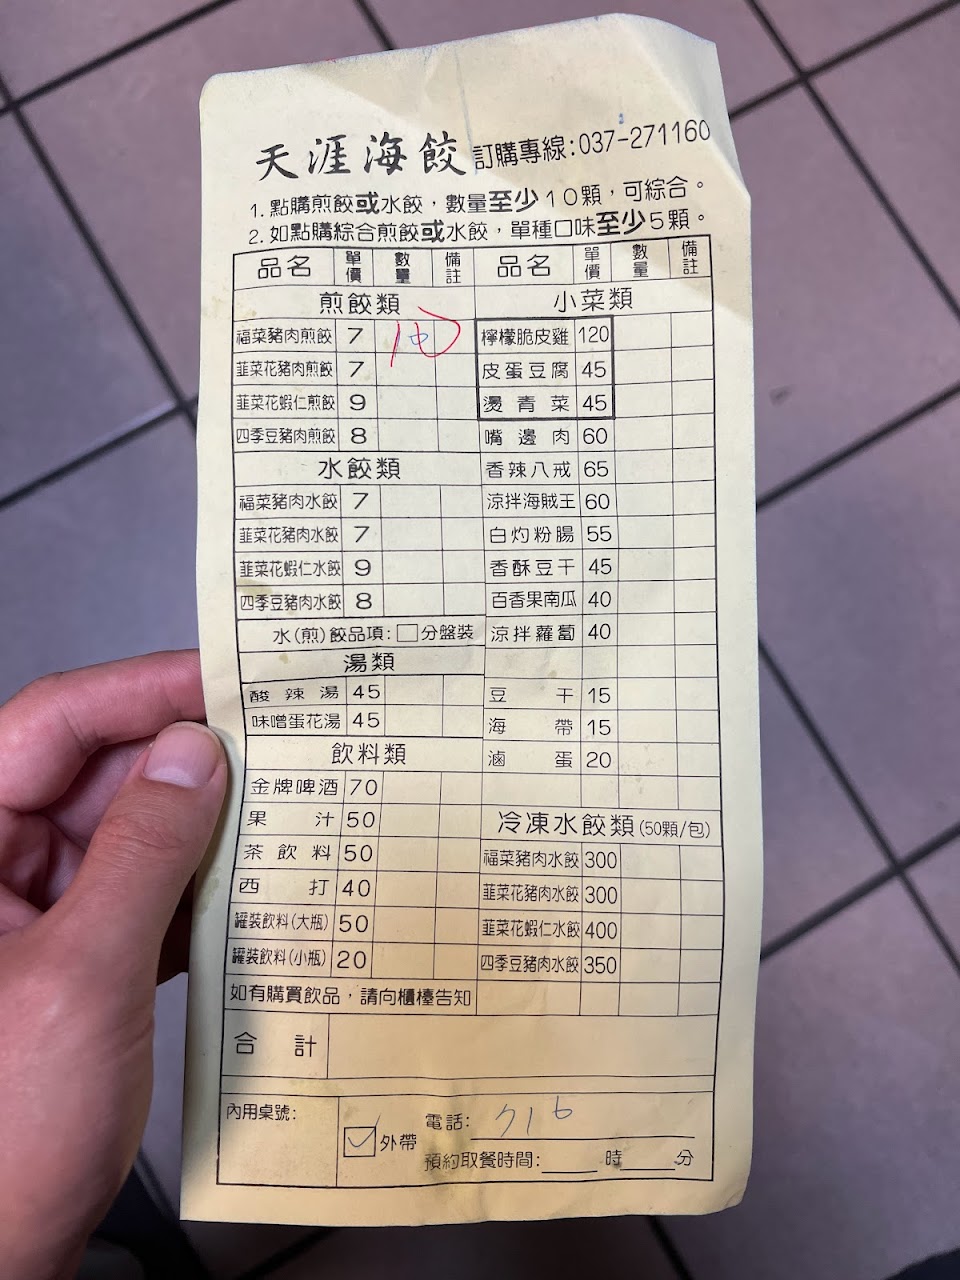 天涯海餃 訂購專線:037-271160
1. 點購煎餃或水餃，數量至少10顆，可綜合。
2. 如點購綜合煎餃或水餃，單種口味至少5顆。
品名 單價 數量 備註
煎餃類
福菜豬肉煎餃 7 10
韭菜花豬肉煎餃 7
韭菜花蝦仁煎餃 9
四季豆豬肉煎餃 8
水餃類
福菜豬肉水餃 7
韭菜花豬肉水餃 7
韭菜花蝦仁水餃 9
四季豆豬肉水餃 8
水(煎)餃品項:□分盤裝
湯類
酸辣湯 45
味噌蛋花湯 45
飲料類
金牌啤酒 70
果汁 50
茶飲料 50
西打 40
罐裝飲料(大瓶) 50
罐裝飲料(小瓶) 20
如有購買飲品，請向櫃檯告知
品名 單價 數量 備註
小菜類
檸檬脆皮雞 120
皮蛋豆腐 45
燙青菜 45
嘴邊肉 60
香辣八戒 65
涼拌海賊王 60
白灼粉腸 55
香酥豆干 45
百香果南瓜 40
涼拌蘿蔔 40
豆干 15
海帶 15
滷蛋 20
冷凍水餃類(50顆/包)
福菜豬肉水餃 300
韭菜花豬肉水餃 300
韭菜花蝦仁水餃 400
四季豆豬肉水餃 350
合計
內用桌號:
☑外帶
電話: 716
預約取餐時間:____時____分